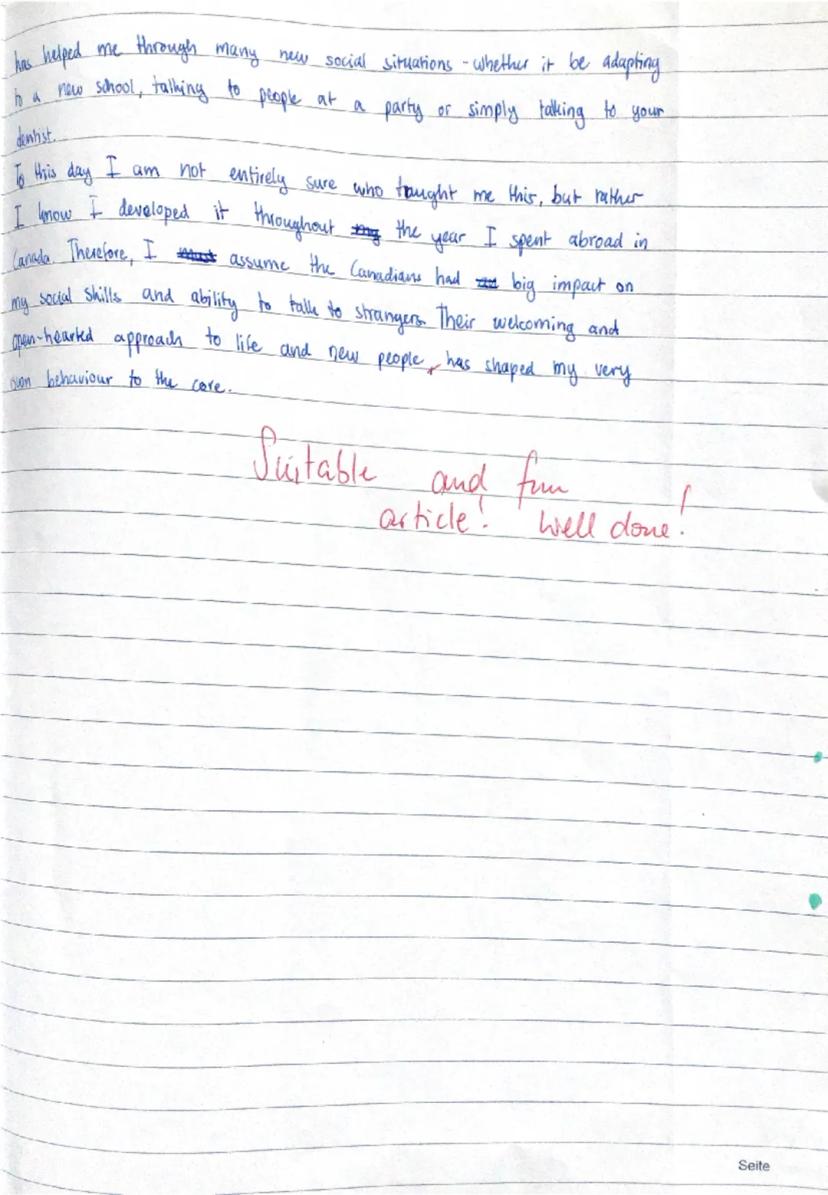 has helped me through many new social situations - whether it be adapting
to a new school, talking to people at a party or simply talking to your
dentist.
To this day I am not entirely sure who taught me this, but rather
I know I developed it throughout my the year I spent abroad in
Canada. Therefore, I must assume the Canadians had big impact on
my social skills and ability to talk to strangers. Their welcoming and
open-hearted approach to life and new people, has shaped my very
own behaviour to the core.
Suitable and fun
article! Well done!
Seite